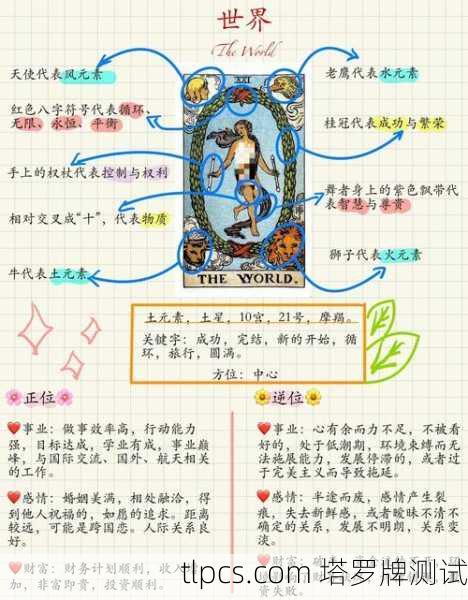 世界
The World
天使代表风元素
老鹰代表水元素
红色八字符号代表循环、
无限、永恒、平衡
桂冠代表成功与繁荣
手上的权杖代表控制与权利
舞者身上的紫色飘带代
表智慧与尊贵
相对交叉成“十”，代表物质
狮子代表火元素
牛代表土元素
XXI
THE WORLD.
土元素，土星，10宫，21号，摩羯。
关键字：成功，完结，新的开始，循
环，旅行，圆满。
方位：中心
正位
事业：做事效率高，行动能力
强，目标达成，学业有成，事业巅
峰，与国际交流、国外、航天相关
的工作。
感情：婚姻美满，相处融洽，得
到他人祝福的，如愿的追求。距离
较远，可能是跨国恋。人际关系良
好。
财富：财务计划顺利，收入
加，非富即贵，投资顺利。
逆位
事业：心有余而力不足，不被看
好的，处于低潮期，环境束缚而无
法施展能力，发展停滞的，或者过
于完美主义而导致拖延。
感情：半途而废，感情产生裂
痕，失去新鲜感，或者暧昧不清不
确定的关系，发展不明朗，关系变
淡。
财富：
资失败。
tlpcs.com 塔罗牌测试